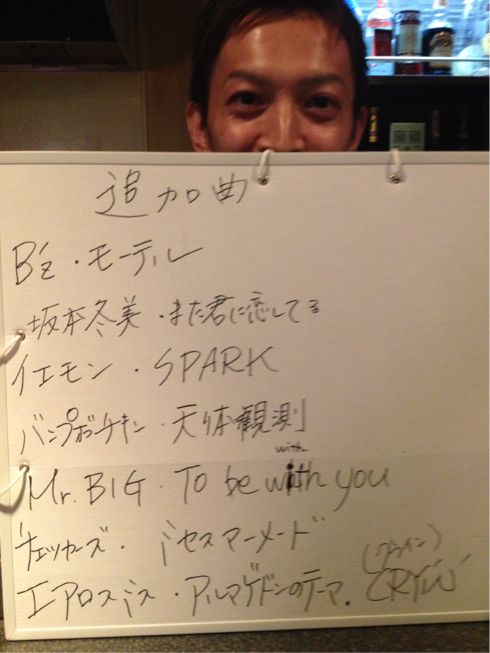 追加曲
B'z・モーテル
坂本冬美・また君に恋してる
イエモン・SPARK
バンプオブチキン・天体観測
with
Mr. BIG・To be with you
チェッカーズ・ミセスマーメード
(クライン)
エアロスミス・アルマゲドンのテーマ。CRYIN'